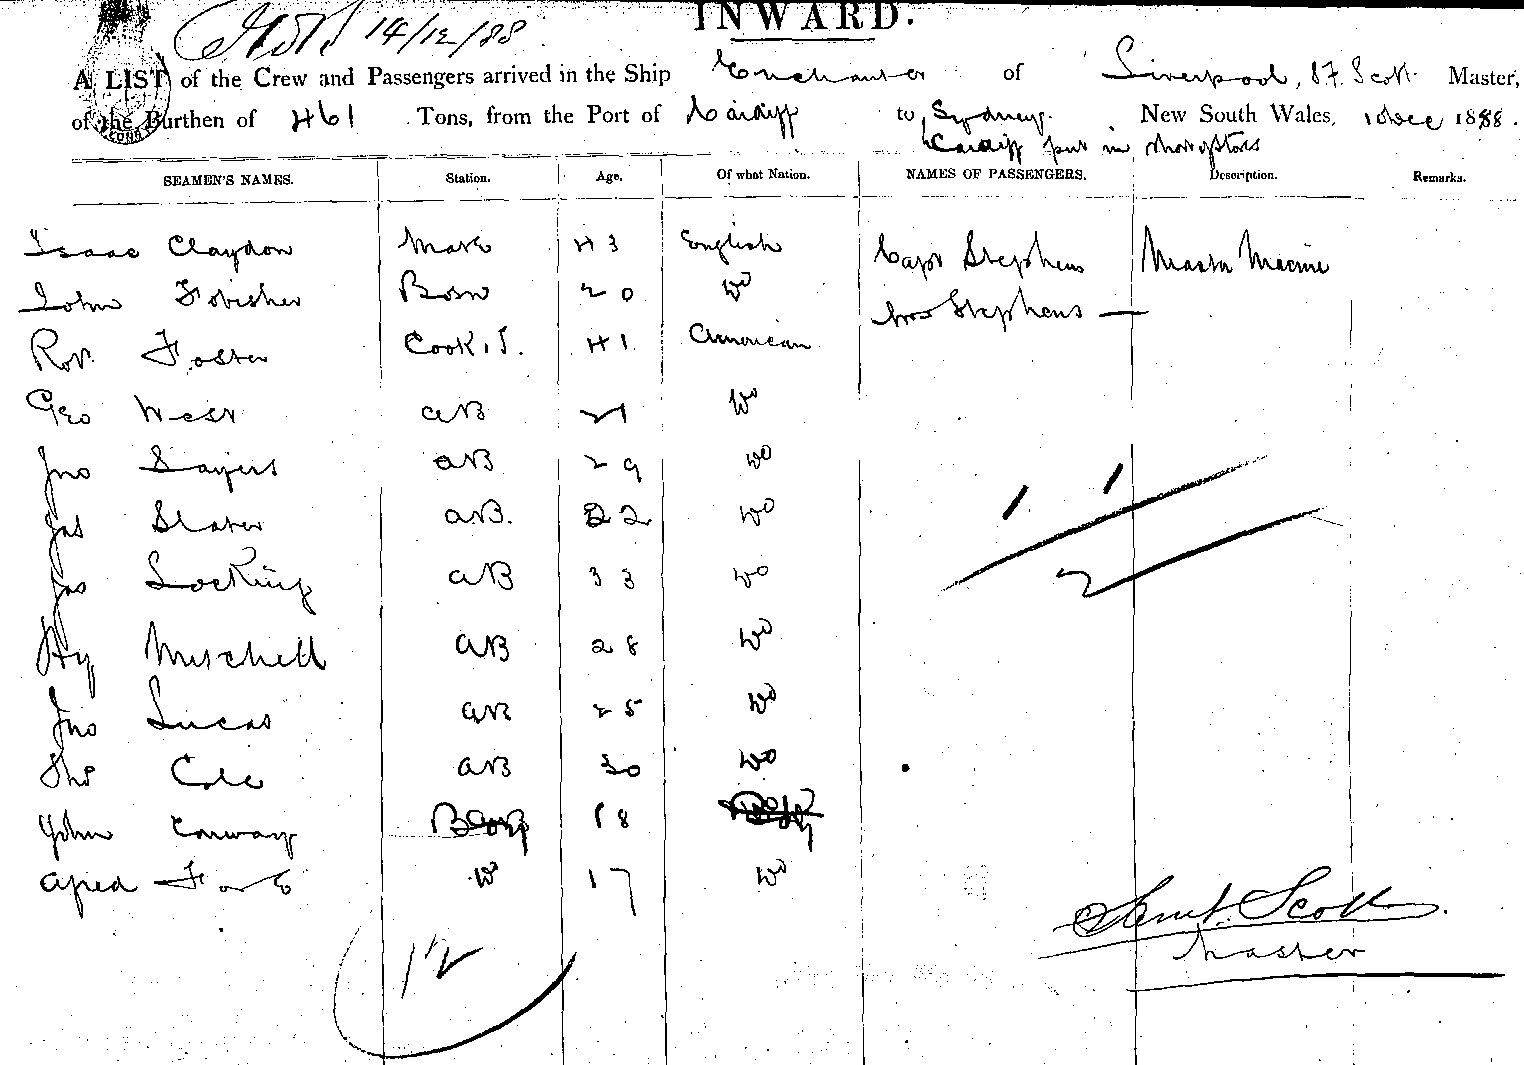 INWARD.
14/12/88
A LIST of the Crew and Passengers arrived in the Ship Enchanter of Liverpool, Scott Master,
of the Burthen of 461 Tons, from the Port of Cardiff to Sydney. New South Wales, 1 Dec 1888.
Cardiff put in
SEAMEN'S NAMES. Station. Age. Of what Nation. NAMES OF PASSENGERS. Description. Remarks.
Isaac Claydon Mate 43 English Capt Stephens Master Marine
John Fobisher Bosn 20 Do Mrs Stephens —
Robt Foster Cook & S. 41 American
Geo West AB 21 Do
Jno Sayers AB 29 Do
Jas Slater AB. 22 Do
Jas Locking AB 33 Do
Hy Mitchell AB 28 Do
Jno Lucas AB 25 Do
Cole AB 30 Do
John Conway 18
Alfred 17 Do
1 1
2
12
Saml. Scott
Master